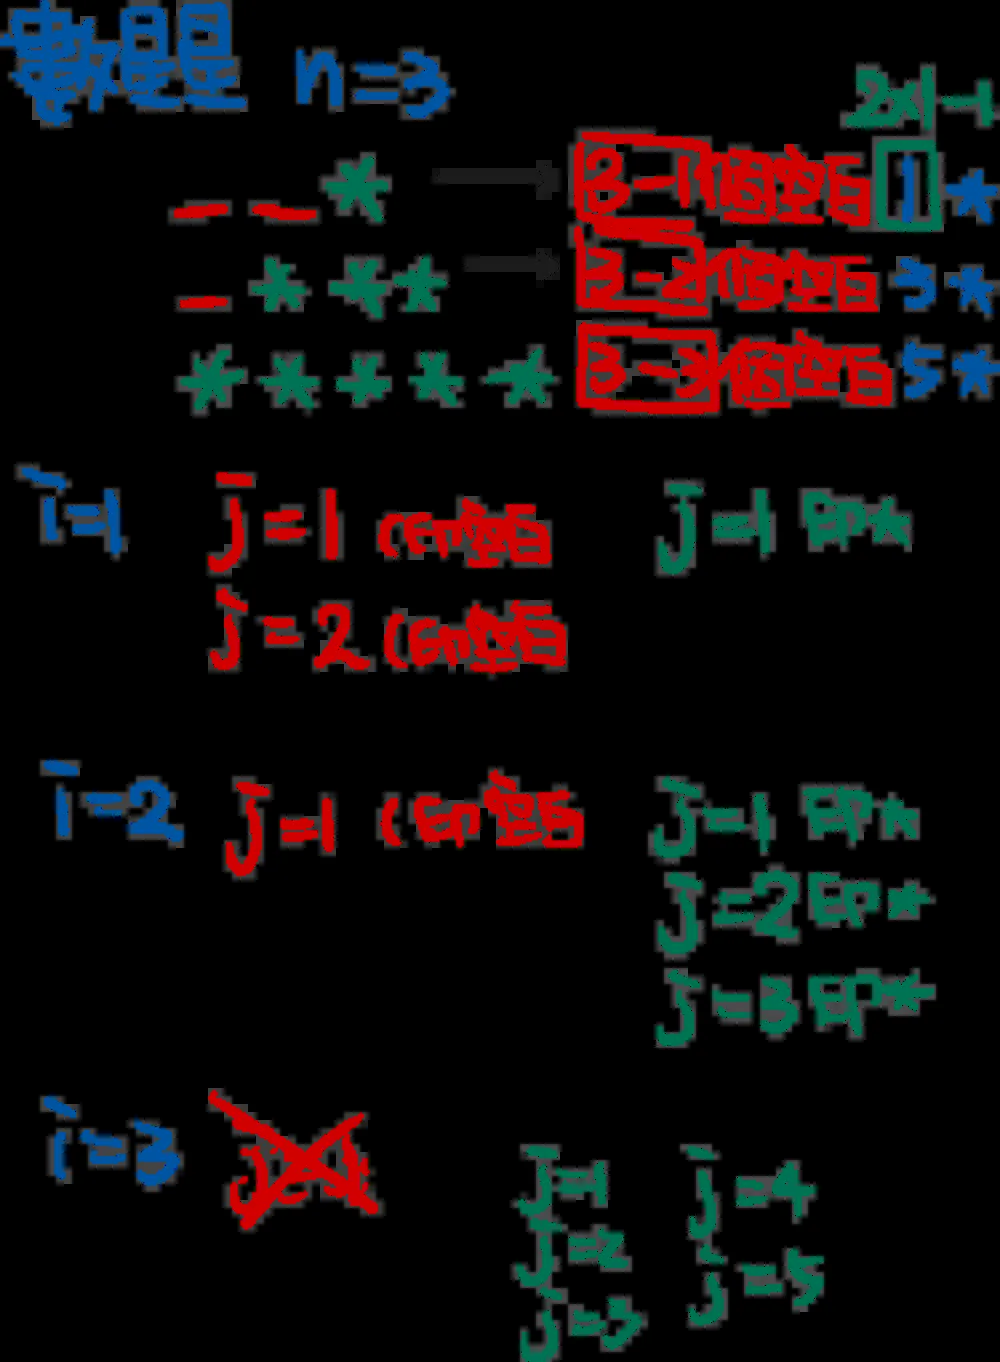 數量是 n=3
2×1-1
_ _ * → 3-1個空白 1 *
_ * * * → 3-2個空白 3 *
* * * * * 3-3個空白 5 *
i=1 j=1 (印空白 j=1 印*
j=2 (印空白
i=2 j=1 (印空白 j=1 印*
j=2 印*
j=3 印*
i=3 j=1 j=4
j=2 j=5
j=3